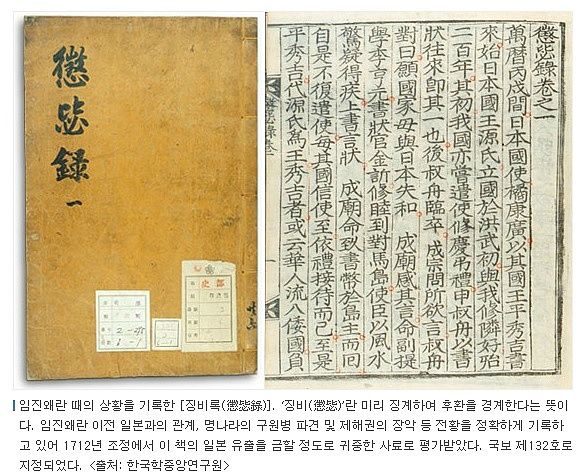 懲毖錄
一
懲毖錄卷之一
萬曆丙戌間日本國使橘康廣以其國王平秀吉書
來始日本國王源氏立國於洪武初與我修隣好殆
二百年其初我國亦嘗遣使修慶弔禮申叔舟以書
狀往來即其一也後叔舟臨卒 成宗問所欲言叔舟
對曰願國家毋與日本失和 成廟感其言命副提
學李亨元書狀官金訢修睦到對馬島使臣以風水
驚疑得疾上書言狀 成廟命致書幣於島主而回
自是不復遣使每其國信使至依禮接待而已至是
平秀吉代源氏爲王秀吉者或云華人流入倭國負
임진왜란 때의 상황을 기록한 [징비록(懲毖錄)]. ‘징비(懲毖)’란 미리 징계하여 후환을 경계한다는 뜻이
다. 임진왜란 이전 일본과의 관계, 명나라의 구원병 파견 및 제해권의 장악 등 전황을 정확하게 기록하
고 있어 1712년 조정에서 이 책의 일본 유출을 금할 정도로 귀중한 사료로 평가받았다. 국보 제132호로
지정되었다. <출처: 한국학중앙연구원>